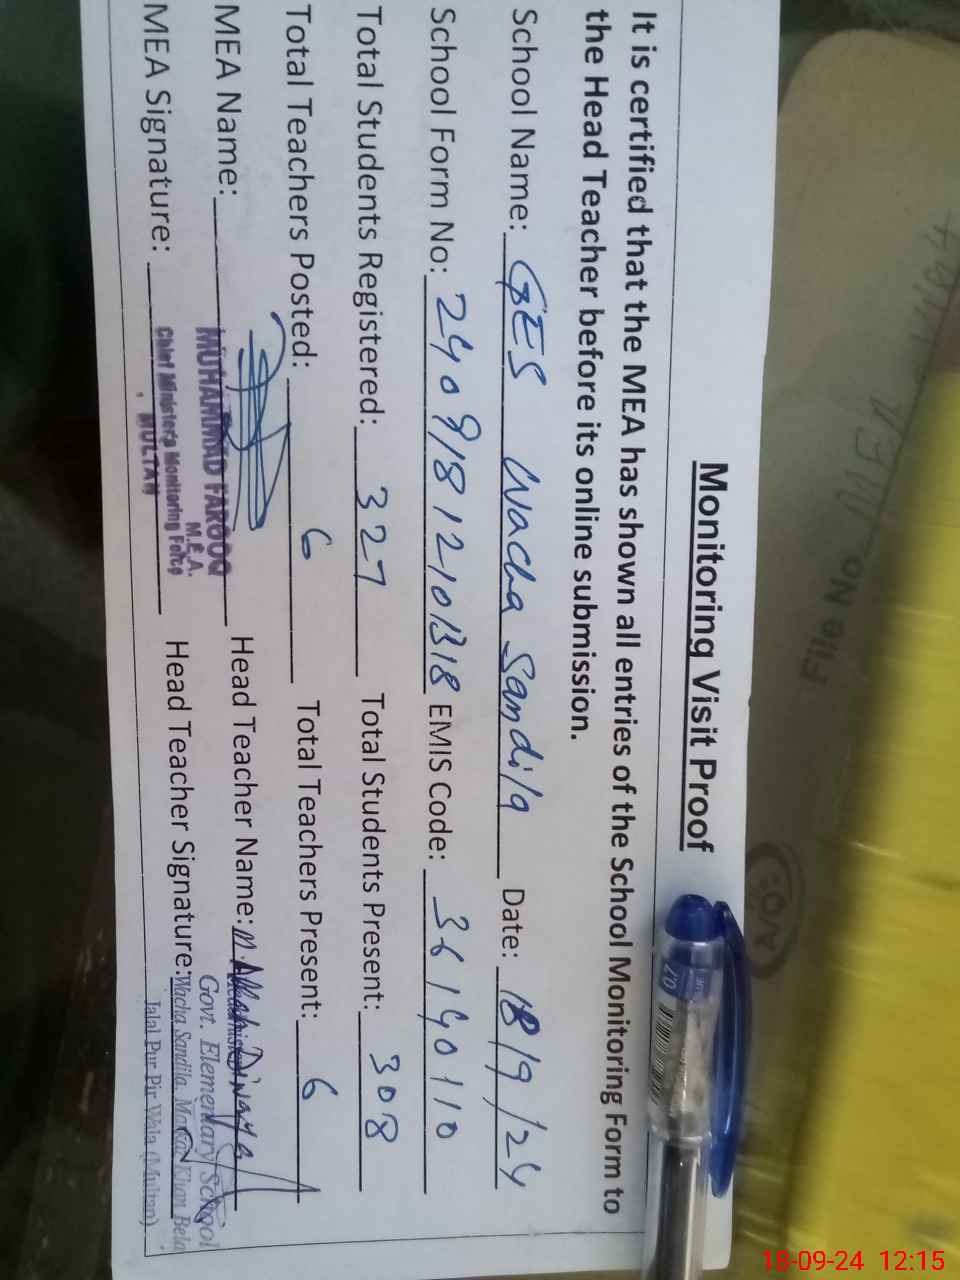 Monitoring Visit Proof
It is certified that the MEA has shown all entries of the School Monitoring Form to
the Head Teacher before its online submission.
School Name: GES Wacha Sandila Date: 18/9/24
School Form No: 24091812101318 EMIS Code: 36140110
Total Students Registered: 327 Total Students Present: 308
Total Teachers Posted: 6 Total Teachers Present: 6
MEA Name: Head Teacher Name:
MUHAMMAD FAROOQ
M.E.A.
Chief Minister's Monitoring Force
MULTAN
MEA Signature: Head Teacher Signature:
Govt. Elementary School
Wacha Sandila, Khan Bela
Jalal Pur Pir Wala (Multan)
File No
MEA
18-09-24 12:15